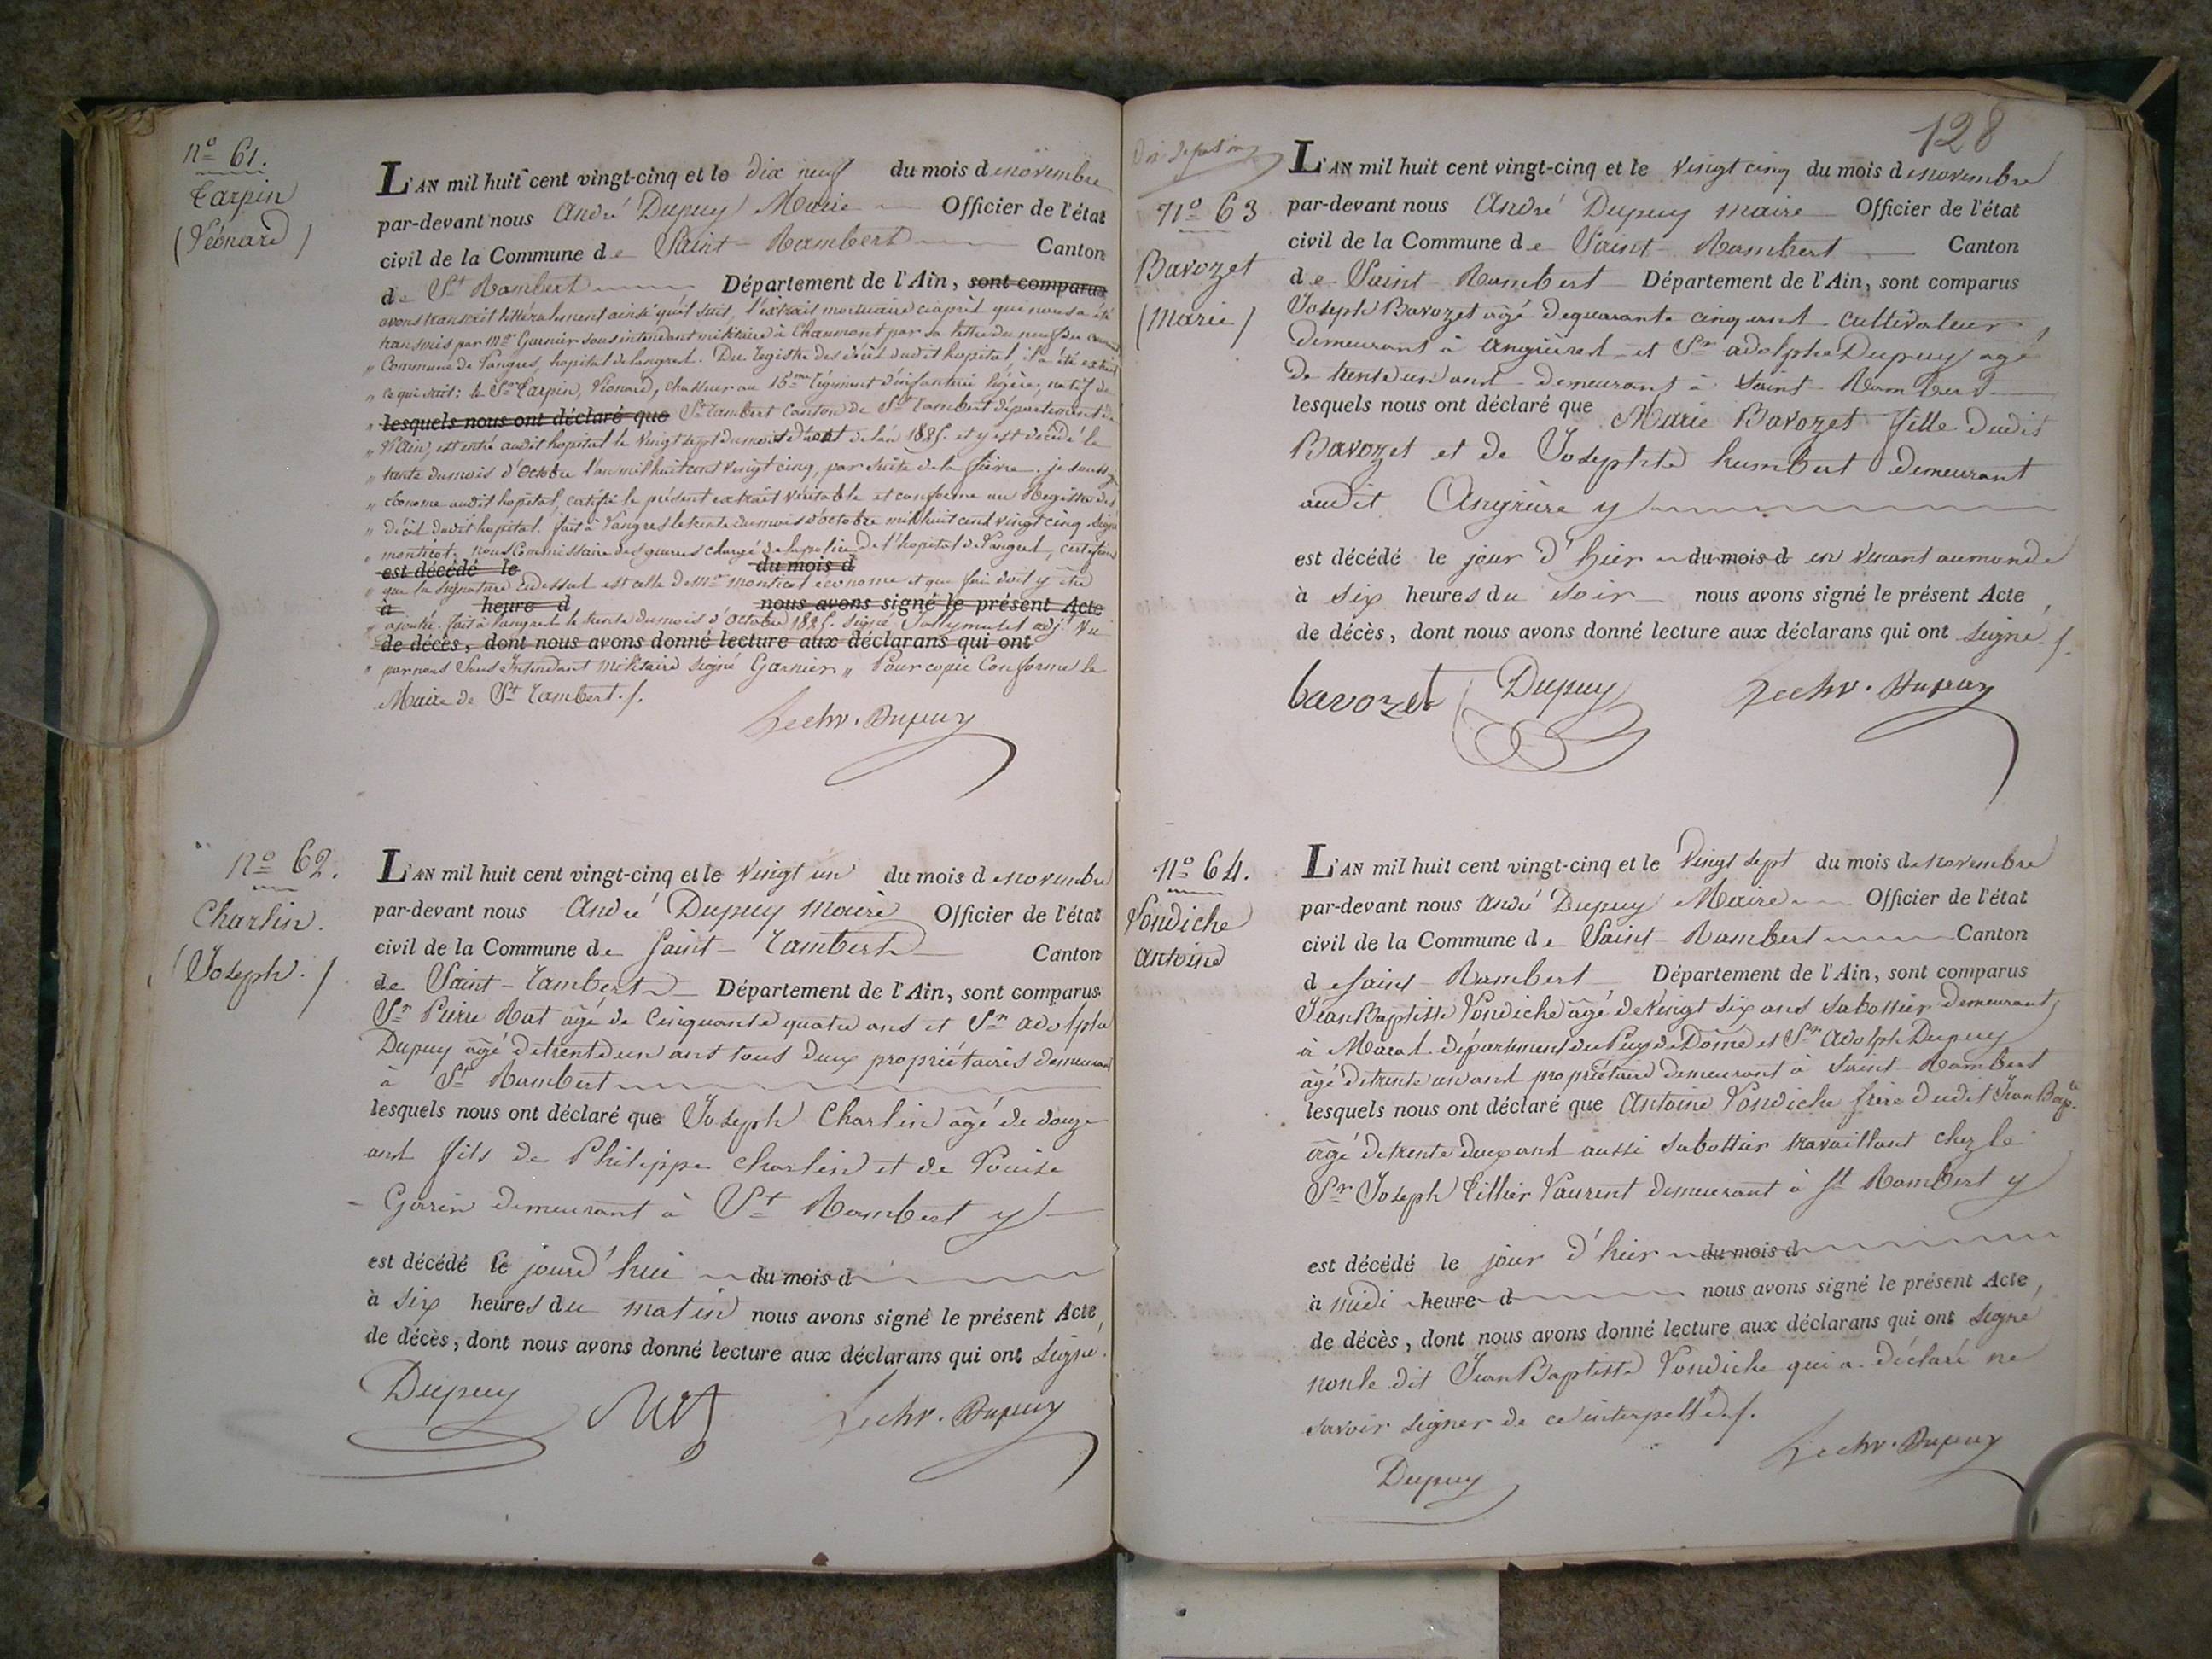 nº 61.
Tarpin
(Léonard)
L'AN mil huit cent vingt-cinq et le dix neuf du mois de novembre
par-devant nous André Dupuy Maire Officier de l'état
civil de la Commune de Saint-Rambert Canton
de St Rambert Département de l'Ain, sont comparus
avons transcrit littéralement ainsi qu'il suit, l'extrait mortuaire ciaprès que nous a été
transmis par Mr Garnier sous intendant militaire à Chaumont par sa lettre du neuf du
" Commune de Langres, hopital de Langres. Du registre des décès dudit hopital, il a été extrait
" ce qui suit: le Sr Tarpin, Léonard, chasseur au 15me régiment d'infanterie légère, natif de
" lesquels nous ont déclaré que St Rambert Canton de St Rambert département de
" l'Ain, est entré audit hopital le vingt sept du mois d'aout de l'an 1825. et y est décédé le
" trente du mois d'Octobre l'an mil huit cent vingt cinq, par suite de la fièvre. je soussigné
" économe audit hopital, certifie le présent extrait véritable et conforme au Registre des
" décès dudit hopital. fait à Langres le trente du mois d'octobre mil huit cent vingt cinq. signé
" monticot. nous Commissaire des guerres chargé de la police de l'hopital de Langres, certifions
est décédé le du mois d
" que la signature cidessus est celle de Mr monticot économe et que foi doit y être
à heure d nous avons signé le présent Acte
" ajoutée. fait à Langres le trente du mois d'Octobre 1825. signé adjt Vu
de décès, dont nous avons donné lecture aux déclarans qui ont
" par nous Sous Intendant Militaire signé Garnier " Pour copie Conforme le
Maire de St Rambert ./.
Dupuy
nº 62.
Charlin.
(Joseph./
L'AN mil huit cent vingt-cinq et le vingt un du mois de novembre
par-devant nous André Dupuy maire Officier de l'état
civil de la Commune de Saint-Rambert Canton
de Saint-Rambert Département de l'Ain, sont comparus
Sr Pierre Rat âgé de Cinquante quatre ans et Sr adolphe
Dupuy âgé de trente un ans tous deux propriétaires demeurant
à St Rambert
lesquels nous ont déclaré que Joseph Charlin âgé de douze
ans fils de Philippe Charlin et de Louise
Garin demeurant à St Rambert y
est décédé le jourd'hui du mois d
à six heures du matin nous avons signé le présent Acte
de décès, dont nous avons donné lecture aux déclarans qui ont signé.
Dupuy Rat Dupuy
128
nº 63
Bavozet
(Marie)
L'AN mil huit cent vingt-cinq et le vingt cinq du mois de novembre
par-devant nous André Dupuy maire Officier de l'état
civil de la Commune de Saint-Rambert Canton
de Saint-Rambert Département de l'Ain, sont comparus
Joseph Bavozet âgé de quarante cinq ans cultivateur,
demeurant à Angrières et Sr adolphe Dupuy agé
de trente un ans demeurant à Saint-Rambert
lesquels nous ont déclaré que Marie Bavozet fille dudit
Bavozet et de Josephte humbert demeurant
audit Angrière y
est décédé le jour d'hier du mois d en venant au monde
à six heures du soir nous avons signé le présent Acte
de décès, dont nous avons donné lecture aux déclarans qui ont signé ./.
bavozet Dupuy Dupuy
nº 64.
Vondiche
Antoine
L'AN mil huit cent vingt-cinq et le vingt sept du mois de novembre
par-devant nous André Dupuy Maire Officier de l'état
civil de la Commune de Saint-Rambert Canton
de Saint-Rambert Département de l'Ain, sont comparus
Jean Baptiste Vondiche âgé de vingt six ans sabottier demeurant
à Marat département du Puy de Dôme et Sr Adolphe Dupuy
âgé de trente un ans propriétaire demeurant à Saint-Rambert
lesquels nous ont déclaré que Antoine Vondiche frère dudit Jean Bapte
âgé de trente deux ans aussi sabottier travaillant chez le
Sr Joseph Tillier Laurent demeurant à St Rambert y
est décédé le jour d'hier du mois d
à midi heure d nous avons signé le présent Acte,
de décès, dont nous avons donné lecture aux déclarans qui ont signé
non le dit Jean Baptiste Vondiche qui a déclaré ne
savoir signer de ce interpellé ./.
Dupuy Dupuy